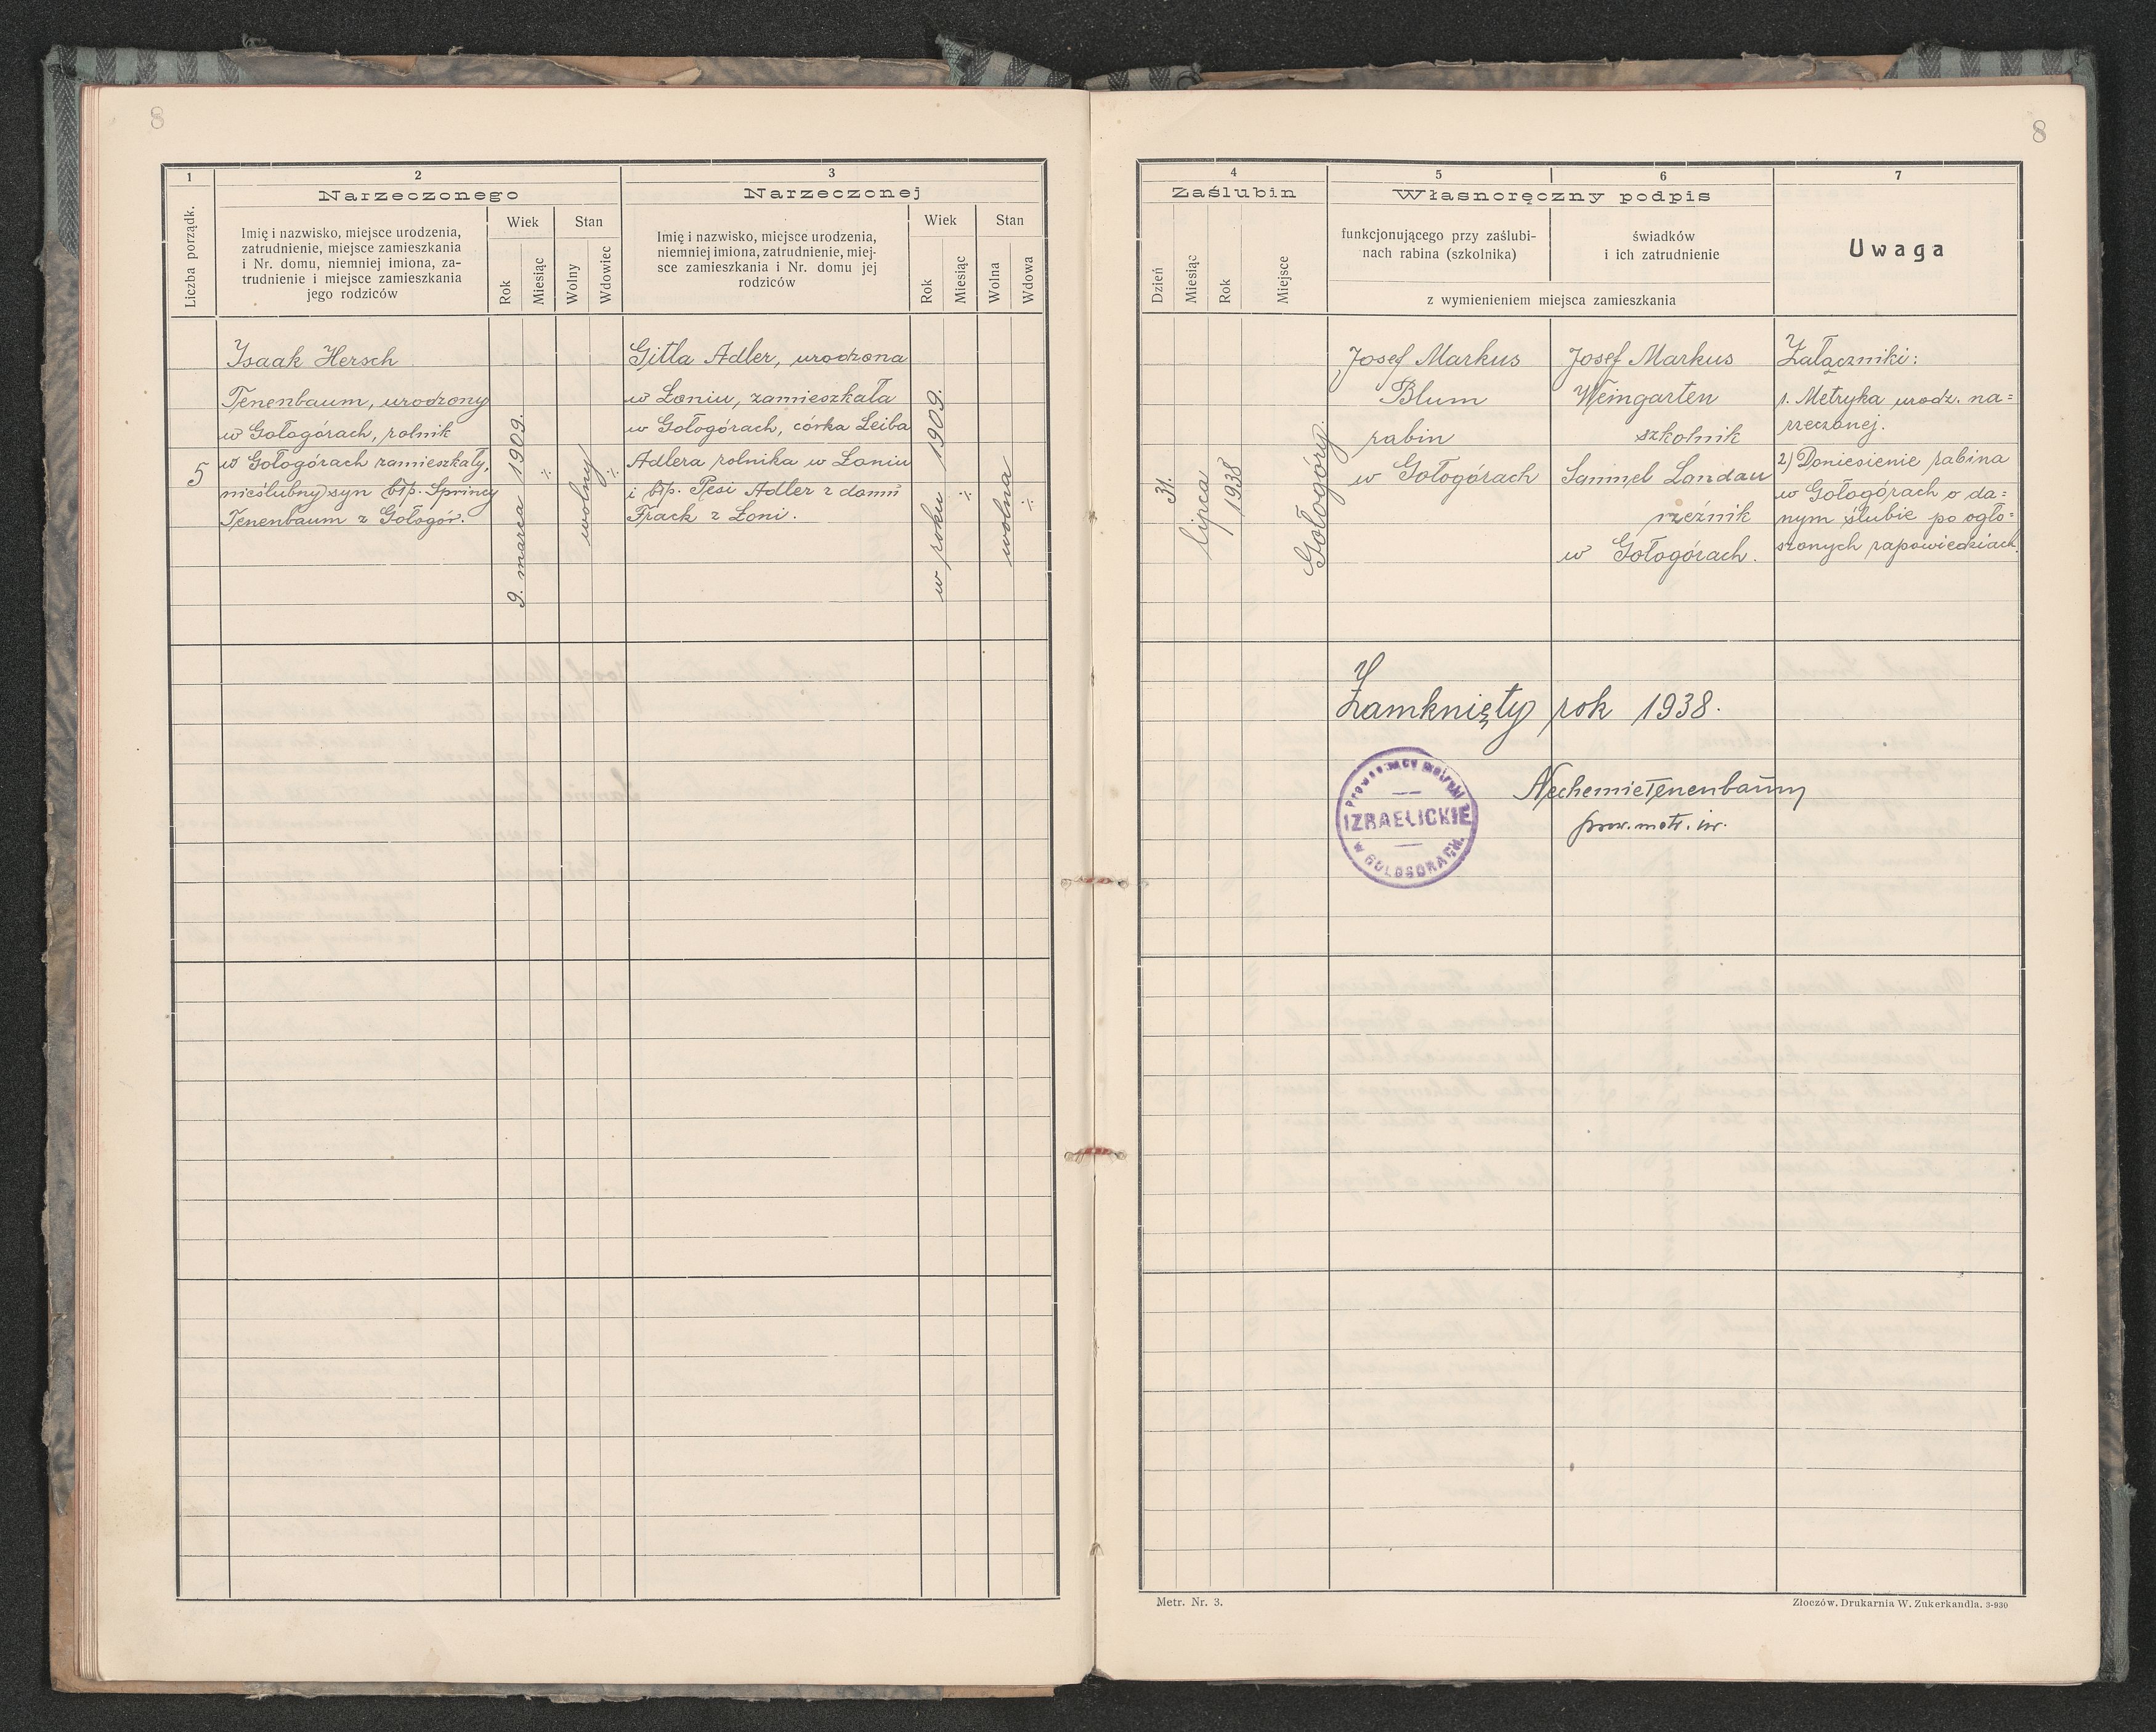 8
1
2
Narzeczonego
Liczba porządk.
Imię i nazwisko, miejsce urodzenia,
zatrudnienie, miejsce zamieszkania
i Nr. domu, niemniej imiona, za-
trudnienie i miejsce zamieszkania
jego rodziców
Wiek
Rok
Miesiąc
Stan
Wolny
Wdowiec
3
Narzeczonej
Imię i nazwisko, miejsce urodzenia,
niemniej imiona, zatrudnienie, miej-
sce zamieszkania i Nr. domu jej
rodziców
Wiek
Rok
Miesiąc
Stan
Wolna
Wdowa
5
Isaak Hersch
Tenenbaum, urodzony
w Gołogórach, rolnik
w Gołogórach zamieszkały,
nieślubny syn błp. Sprincy
Tenenbaum z Gołogór.
9. marca 1909.
wolny
Gitla Adler, urodzona
w Łoniu, zamieszkała
w Gołogórach, córka Leiba
Adlera rolnika w Łoniu
i błp. Pesi Adler z domu
Frack z Łoni.
w roku 1909.
wolna
8
4
Zaślubin
Dzień
Miesiąc
Rok
Miejsce
5
6
Własnoręczny podpis
funkcjonującego przy zaślubi-
nach rabina (szkolnika)
świadków
i ich zatrudnienie
z wymienieniem miejsca zamieszkania
7
Uwaga
31.
lipca
1938
Gołogóry.
Josef Markus
Blum
rabin
w Gołogórach
Josef Markus
Weingarten
szkolnik
Samuel Landau
rzeźnik
w Gołogórach.
Załączniki:
1. Metryka urodz. na=
rzeczonej.
2) Doniesienie rabina
w Gołogórach o da=
nym ślubie po ogło=
szonych zapowiedziach
Zamknięty rok 1938.
Prowadzący metryki
IZRAELICKIE
w GOŁOGÓRACH.
Nechemie Tenenbaum
prow. metr. izr.
Metr. Nr. 3.
Złoczów. Drukarnia W. Zukerkandla. 3-930